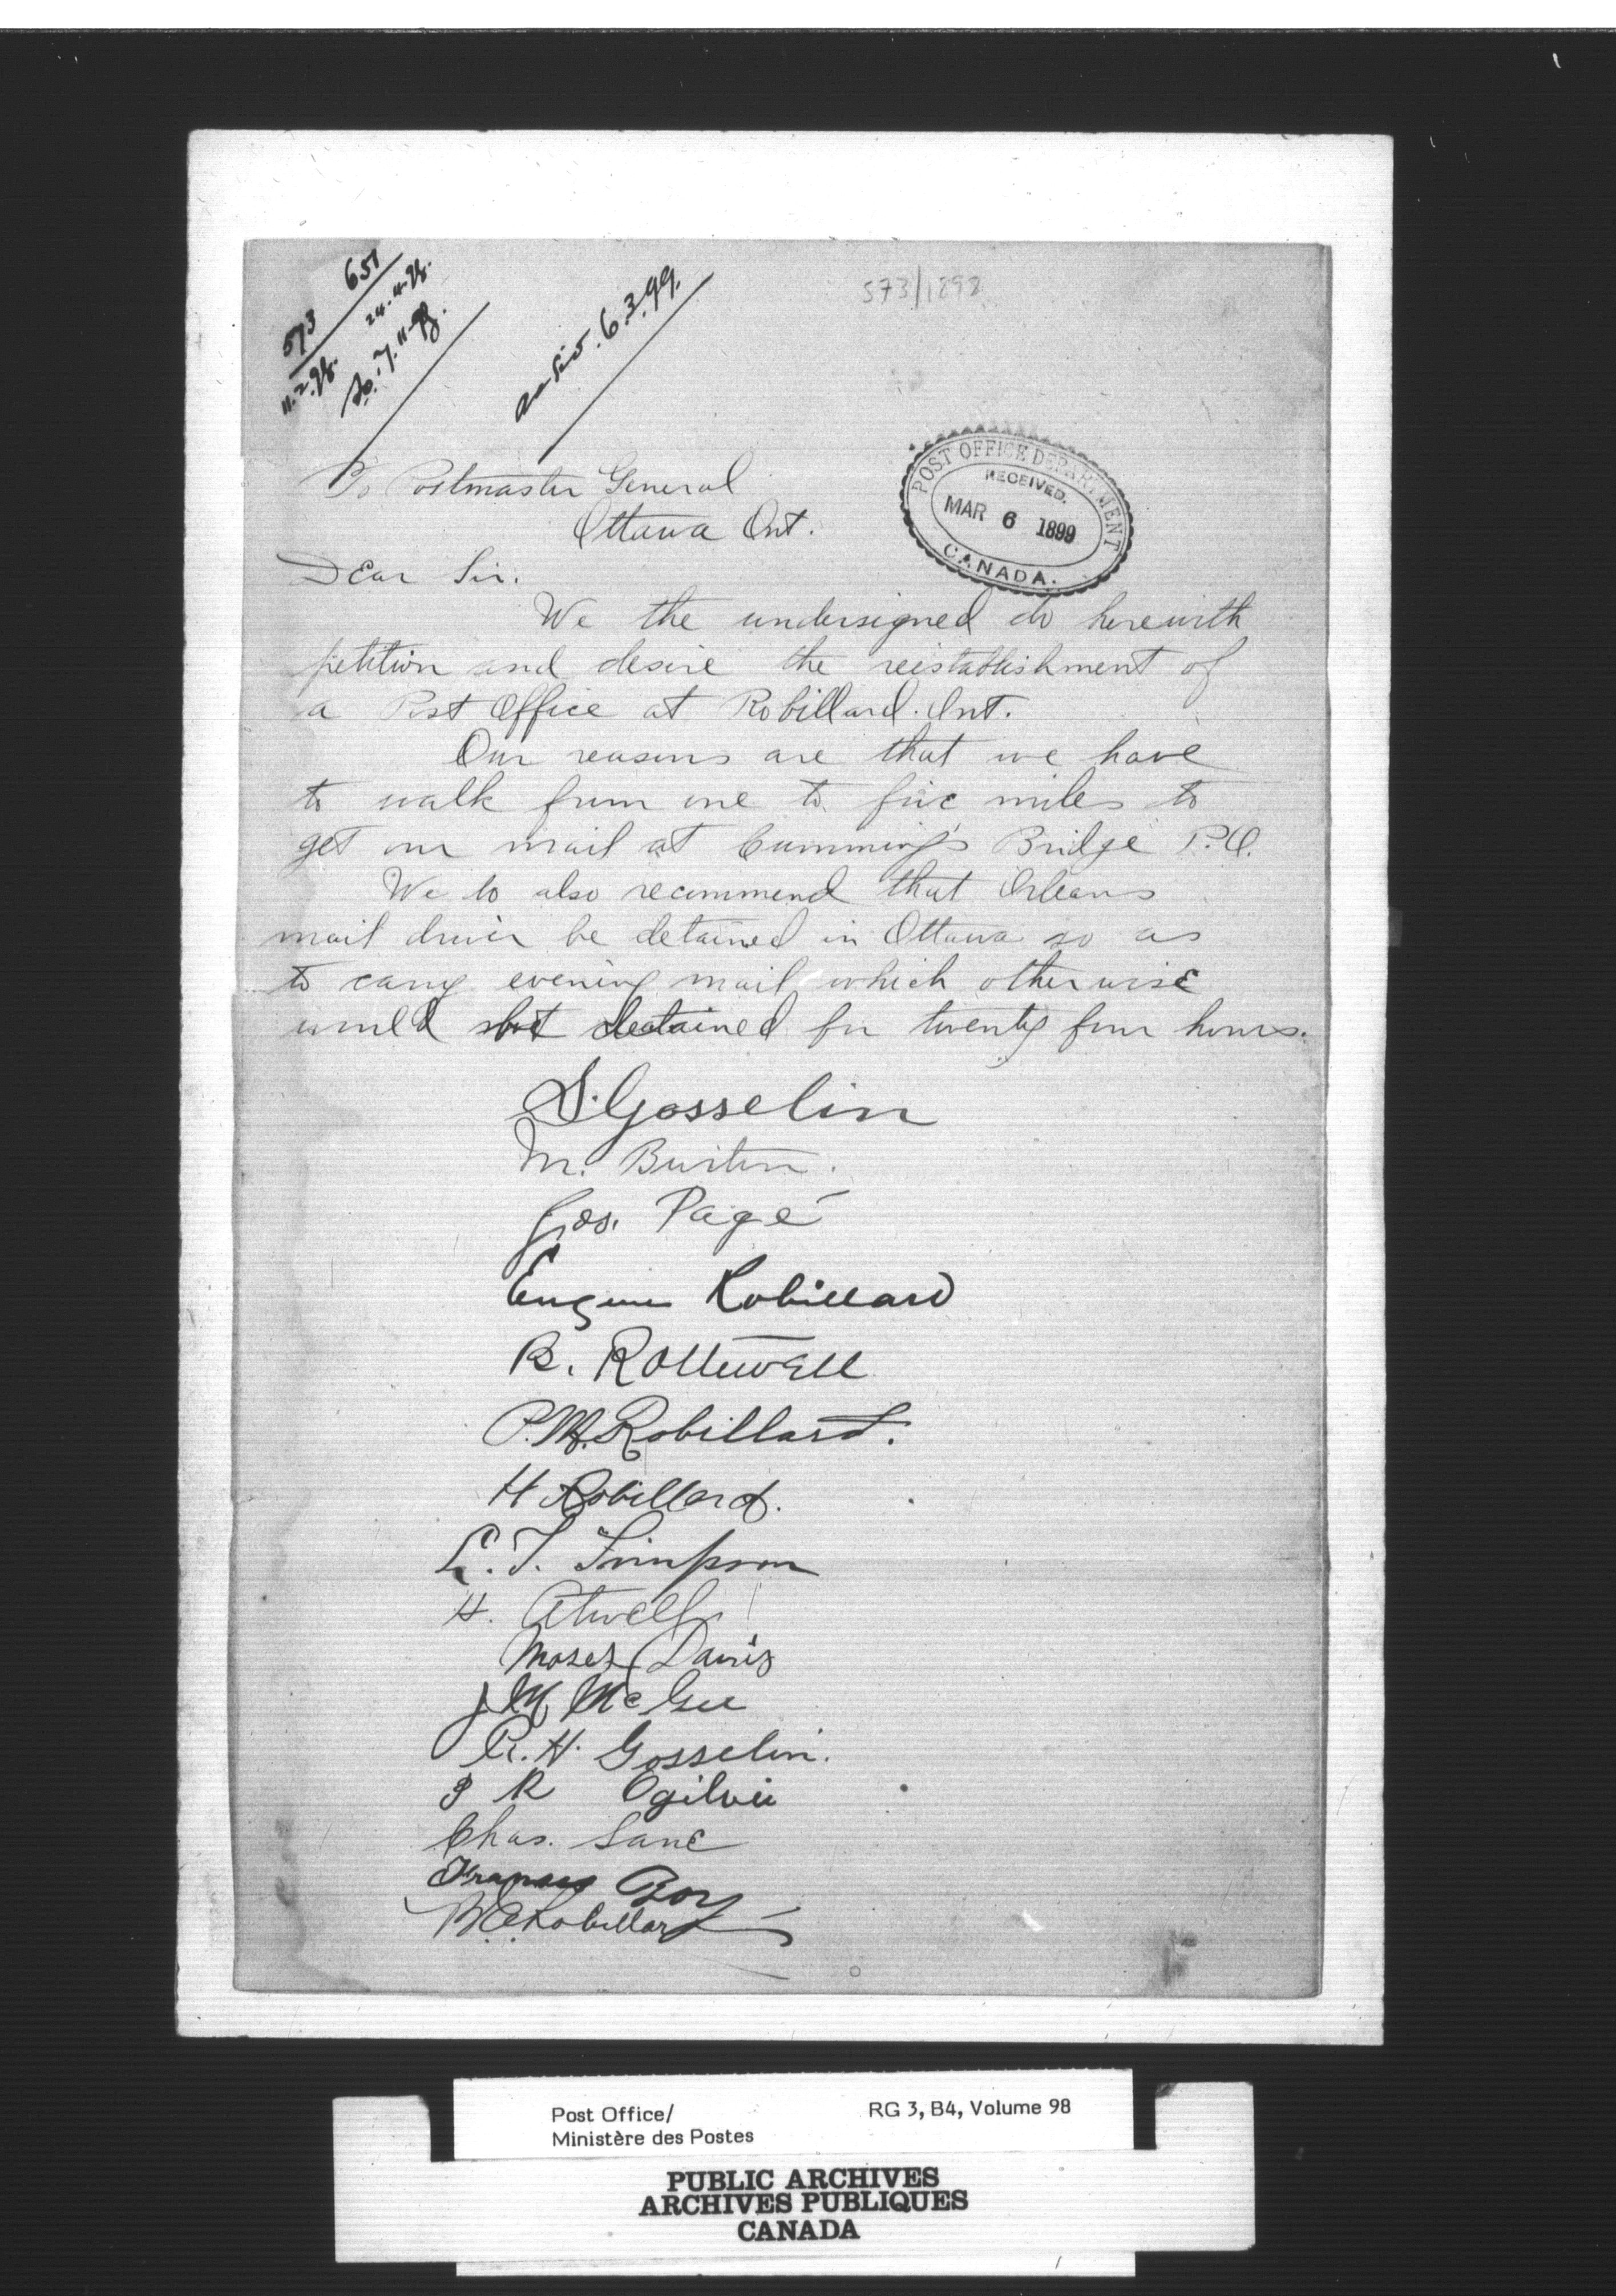 573 651
11.2.98. 24.4.98.
7.11.98.
6.3.99.
573/1898
To Postmaster General
Ottawa Ont.
POST OFFICE DEPARTMENT
RECEIVED.
MAR 6 1899
CANADA.
Dear Sir.
We the undersigned do herewith
petition and desire the reistablishment of
a Post Office at Robillard. Ont.
Our reasons are that we have
to walk from one to five miles to
get our mail at Cumming's Bridge P.O.
We to also recommend that Orleans
mail driver be detained in Ottawa so as
to carry evening mail which otherwise
would detained for twenty four hours.
S. Gosselin
M. Burton.
Jos. Pagé
Eugene Robillard
B. Rothwell
P. M. Robillard.
H Robillard.
L. T. Simpson
H. Atwell
Moses Davis
J M McGee
R. H. Gosselin.
J R Ogilvie
Chas. Lane
Francis Roy
Robillard
Post Office/
Ministère des Postes
RG 3, B4, Volume 98
PUBLIC ARCHIVES
ARCHIVES PUBLIQUES
CANADA